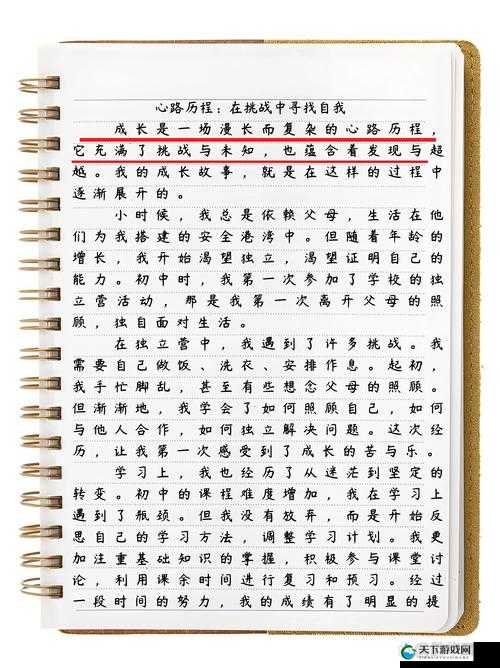 心路历程：在挑战中寻找自我
成长是一场漫长而复杂的心路历程，
它充满了挑战与未知，也蕴含着发现与超
越。我的成长故事，就是在这样的过程中
逐渐展开的。
小时候，我总是依赖父母，生活在他
们为我搭建的安全港湾中。但随着年龄的
增长，我开始渴望独立，渴望证明自己的
能力。初中时，我第一次参加了学校的独
立营活动，那是我第一次离开父母的照
顾，独自面对生活。
在独立营中，我遇到了许多挑战。我
需要自己做饭、洗衣、安排作息。起初，
我手忙脚乱，甚至有些想念父母的照顾。
但渐渐地，我学会了如何照顾自己，如何
与他人合作，如何独立解决问题。这次经
历，让我第一次感受到了成长的苦与乐。
学习上，我也经历了从迷茫到坚定的
转变。初中的课程难度增加，我在学习上
遇到了瓶颈。但我没有放弃，而是开始反
思自己的学习方法，调整学习计划。我更
加注重基础知识的掌握，积极参与课堂讨
论，利用课余时间进行复习和预习。经过
一段时间的努力，我的成绩有了明显的提
天下游戏网